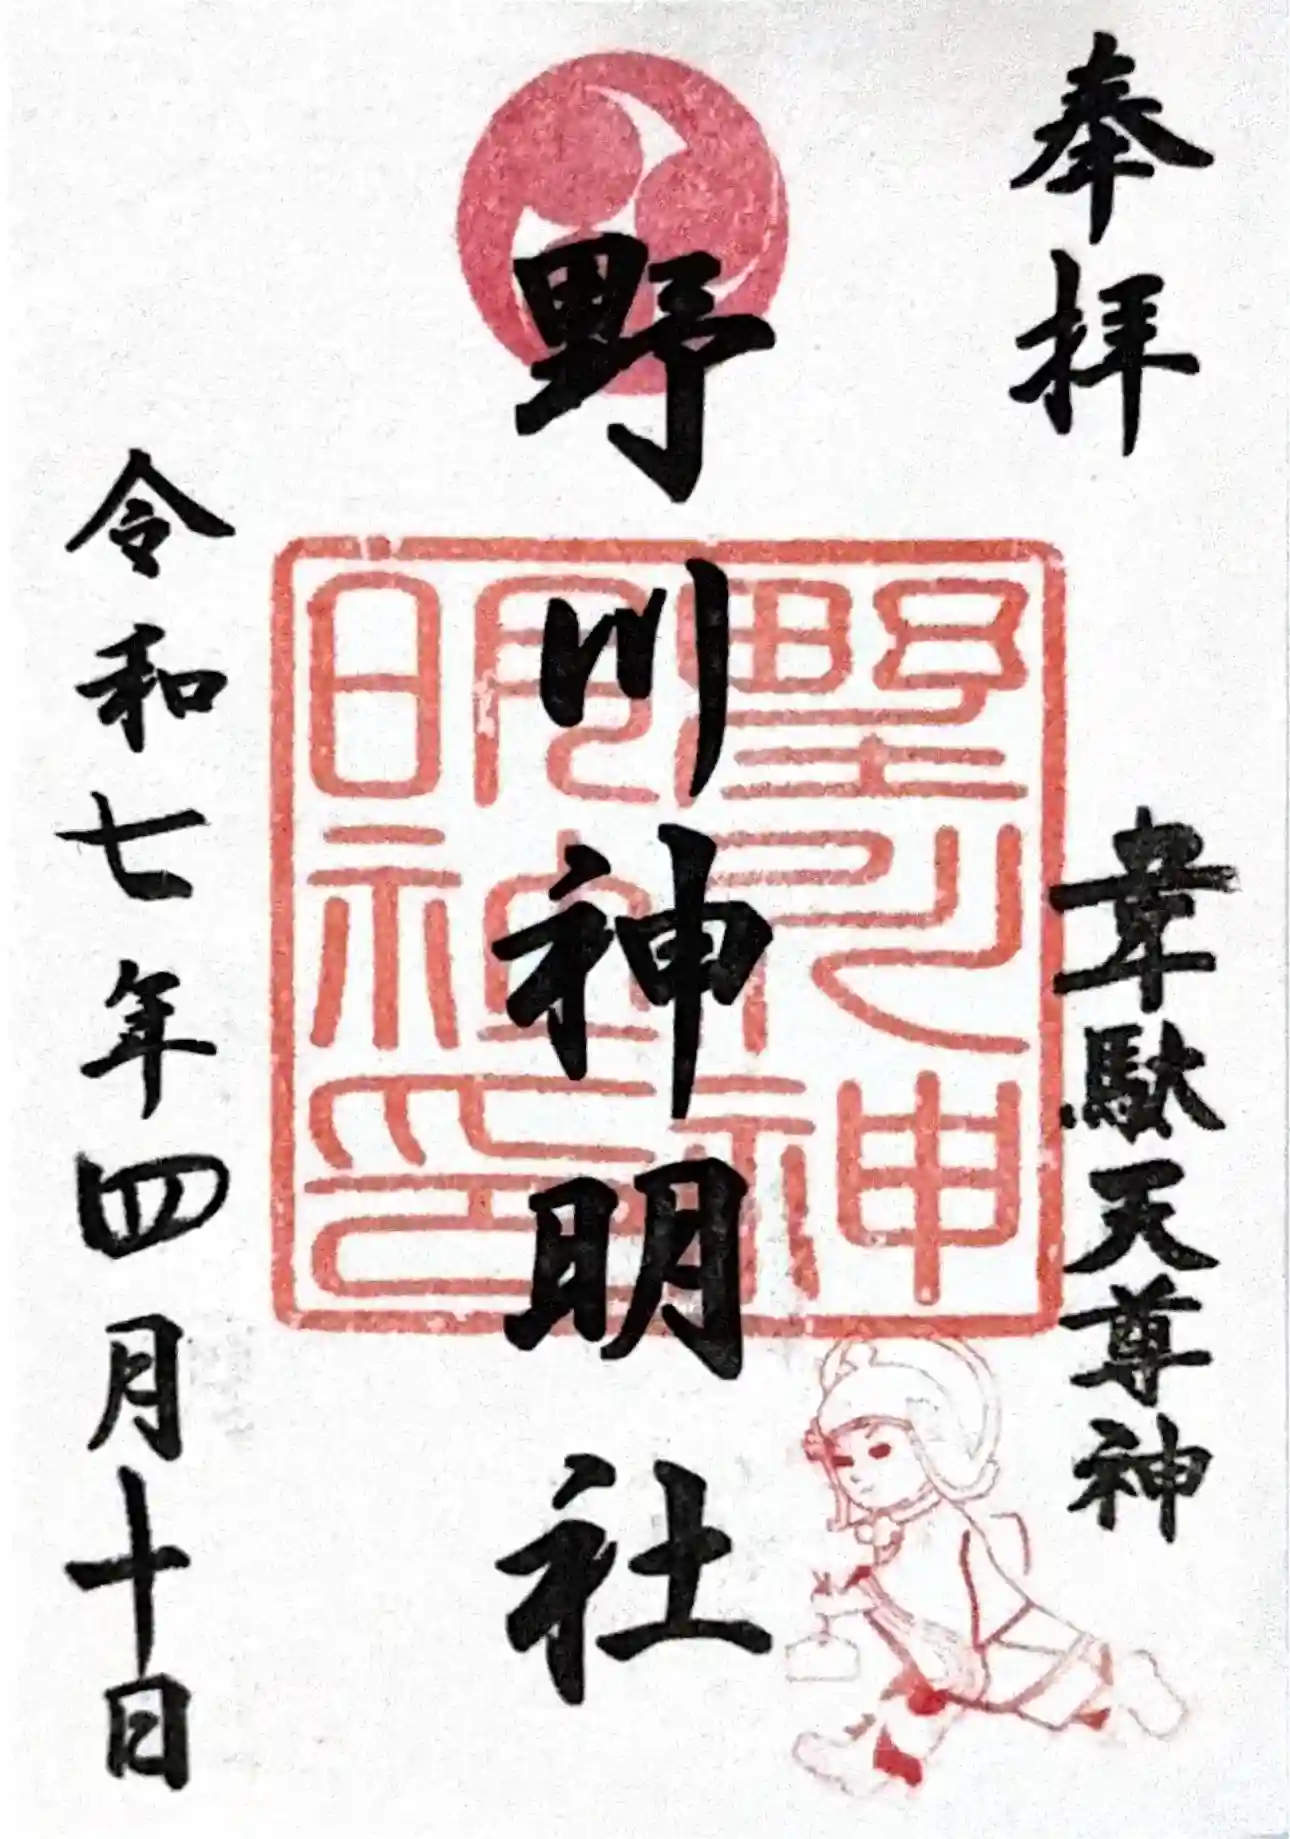 奉拝
韋駄天尊神
野川神明社
令和七年四月十日